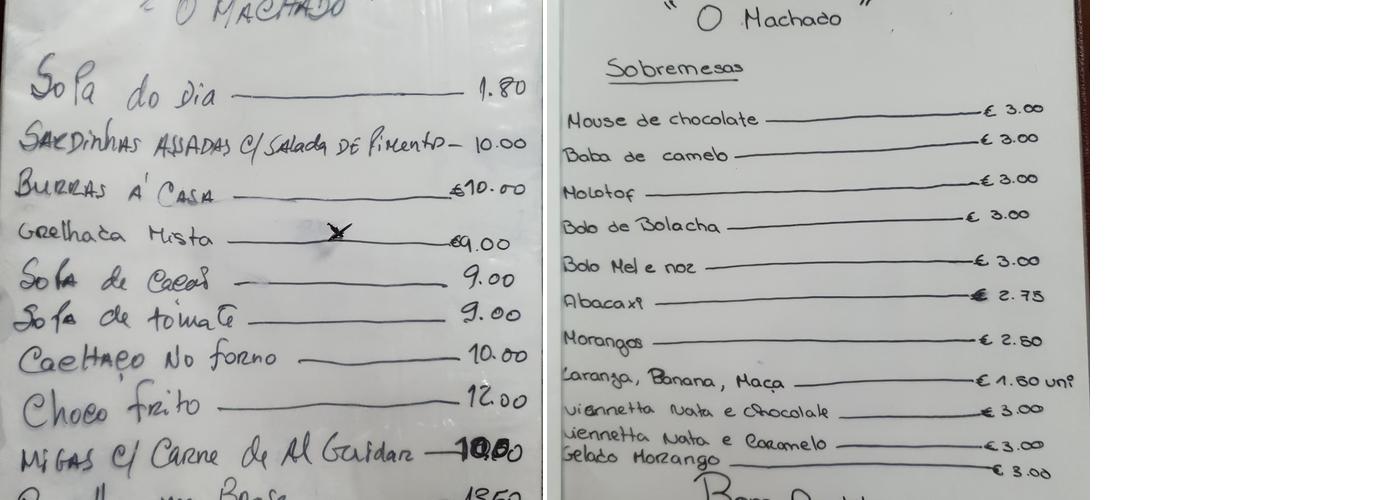 " O MACHADO
Sopa do Dia 1.80
SARDinhAS ASSADAS C/ SAlada DE Pimento 10.00
BURRAS Á CASA €10.00
Grelhada Mista x €9.00
Sopa de 9.00
Sopa de tomate 9.00
No forno 10.00
Choco frito 12.00
MiGAS C/ Carne de Al Guidar 10.00
" O Machado "
Sobremesas
Mouse de chocolate € 3.00
Baba de camelo € 3.00
Molotof € 3.00
Bolo de Bolacha € 3.00
Bolo Mel e noz € 3.00
Abacaxi € 2.75
Morangos € 2.50
Laranja, Banana, Maça € 1.50 uni
Viennetta Nata e Chocolate € 3.00
Viennetta Nata e Caramelo € 3.00
Gelado Morango € 3.00